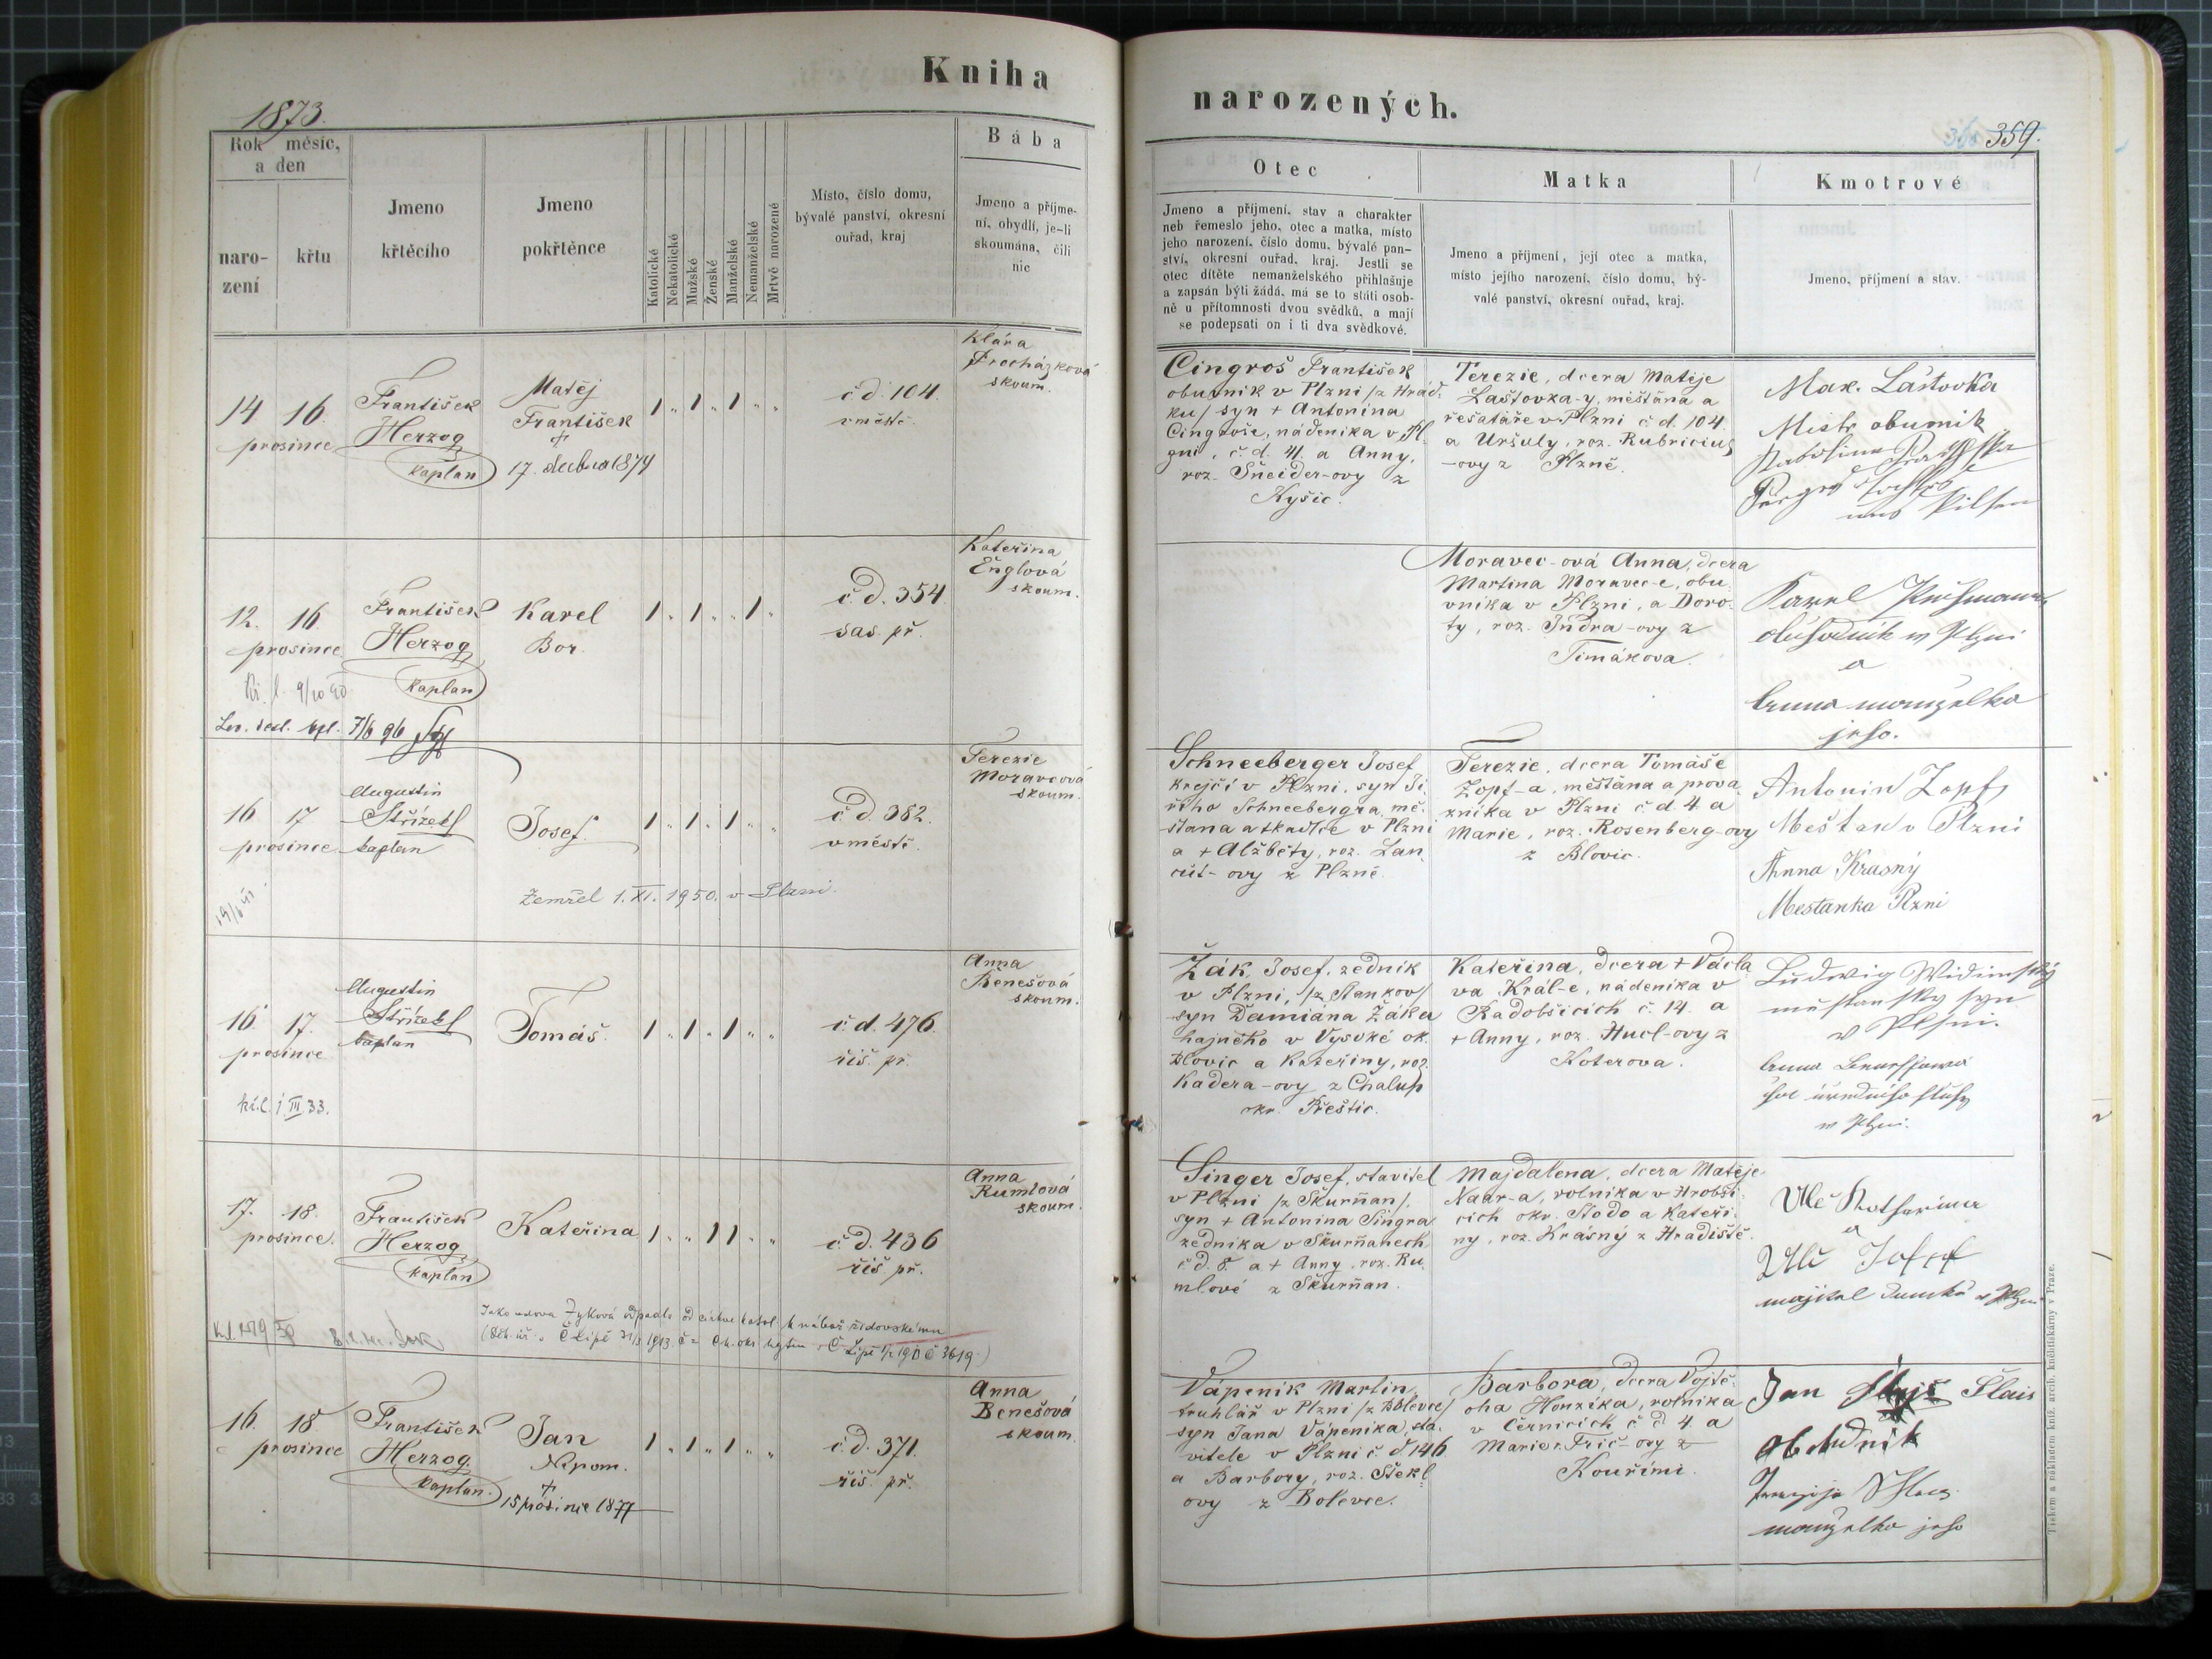 Kniha
narozených.
1873.
359.
Rok měsíc,
a den
naro-
zení
křtu
Jmeno
křtěcího
Jmeno
pokřtěnce
Katolické
Nekatolické
Mužské
Ženské
Manželské
Nemanželské
Mrtvě narozené
Místo, číslo domu,
bývalé panství, okresní
ouřad, kraj
Bába
Jmeno a příjme-
ní, obydlí, je-li
skoumána, čili
nic
Otec
Jmeno a příjmení, stav a charakter
neb řemeslo jeho, otec a matka, místo
jeho narození, číslo domu, bývalé pan-
ství, okresní ouřad, kraj. Jestli se
otec dítěte nemanželského přihlašuje
a zapsán býti žádá, má se to státi osob-
ně u přítomnosti dvou svědků, a mají
se podepsati on i ti dva svědkové.
Matka
Jmeno a příjmení, její otec a matka,
místo jejího narození, číslo domu, bý-
valé panství, okresní ouřad, kraj.
Kmotrové
Jmeno, příjmení a stav.
14 16
prosince
František
Herzog
kaplan
Matěj
František
+
17. dubna 1874
1 " 1 " 1 " "
č.d. 104.
v městě.
Klára
Procházková
skoum.
Cingroš František
obuvník v Plzni /z Hrád-
ku/ syn + Antonína
Cingroše, nádeníka v Pl-
zni, č.d. 41. a Anny,
roz. Šneider-ovy z
Kyšic.
Terezie, dcera Matěje
Laštovka-y, měšťana a
řešetáře v Plzni č.d. 104.
a Uršuly, roz. Rubricius
-ovy z Plzně.
Max. Lástovka
Mistr obuvnik
Pilsen
12. 16
prosince
František
Herzog
kaplan
Karel
Bor.
1 " 1 " " 1 "
č.d. 354
sas. př.
Kateřina
Englová
skoum.
Moravec-ová Anna, dcera
Martina Moravec-e, obu-
vníka v Plzni, a Doro-
ty, roz. Jndra-ovy z
Timákova.
Karel
v Plzni
a
Anna manzelka
jeho.
7/6 96
16 17
prosince
Augustin
Střízek
kaplan
Josef.
1 " 1 " 1 " "
č.d. 382.
v městě.
Zemřel 1. XI. 1950. v Plzni.
Terezie
Moravcová
skoum.
Schneeberger Josef
krejčí v Plzni, syn Ji-
řího Schneebergra, mě-
šťana a tkadlce v Plzni
a + Alžběty, roz. Lan-
cút-ovy z Plzně.
Terezie, dcera Tomáše
Zopf-a, měšťana a prova-
zníka v Plzni č.d. 4. a
Marie, roz. Rosenberg-ovy
z Blovic.
Antonin Zopf
Meštan v Plzni
Anna Krasný
Mestanka Plzni
16. 17.
prosince
Augustin
Střízek
kaplan
Tomáš.
1 " 1 " 1 " "
č.d. 476.
říš. př.
Anna
Benešová
skoum.
kř.l. 1. III 33.
Žák, Josef, zedník
v Plzni, /z Stankov/
syn Damiána Žáka
hajného v Vysoké ok.
Blovic a Kateřiny, roz.
Kadera-ovy z Chalup
okr. Přeštic.
Kateřina, dcera + Václa-
va Král-e, nádeníka v
Radobšicích č. 14. a
+ Anny, roz. Hucl-ovy z
Koterova.
Ludwig Widimský
městanský syn
v Plsni.
Anna
v Plzni.
17. 18.
prosince.
František
Herzog
kaplan
Kateřina
1 " " 1 1 " "
č.d. 436
říš. př.
Anna
Rumlová
skoum.
Jako vdova Zyková odpadla od církve katol. k nábož. židovskému
Singer Josef, stavitel
v Plzni /z Škurňan/.
syn + Antonína Singra
zedníka v Škurňanech
č.d. 8. a + Anny, roz. Ru-
mlové z Škurňan.
Majdalena, dcera Matěje
Naar-a, rolníka v Hrobši-
cích okr. Stodo a Kateři-
ny, roz. Krásný z Hradiště.
Ulč Katharina
a
Ulč Josef
majitel domku v Plzni
16. 18.
prosince
František
Herzog.
kaplan.
Jan
Nepom.
+
15 prosince 1877
1 " 1 " 1 " "
č.d. 371.
říš. př.
Anna
Benešová
skoum.
Vápeník Martin,
truhlář v Plzni /z Bolevce/
syn Jana Vápeníka, sta-
vitele v Plzni č.d. 146
a Barbory, roz. Stekl-
ovy z Bolevce.
Barbora, dcera Vojtě-
cha Honzíka, rolníka
v Černicích č.d. 4. a
Marie r. Frič-ovy z
Kouřimi.
Jan Slais
obchdník
manzelka jeho
Tiskem a nákladem kníž. arcib. knihtiskárny v Praze.